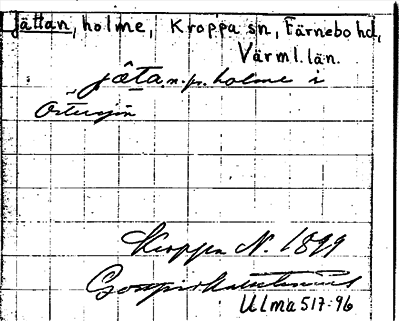 Jättan, holme, Kroppa sn, Färnebo hd,
Värml. län.
jäta. n. pr. holme i
Östersjön
Kroppa N. 1899
Ulma 517:96